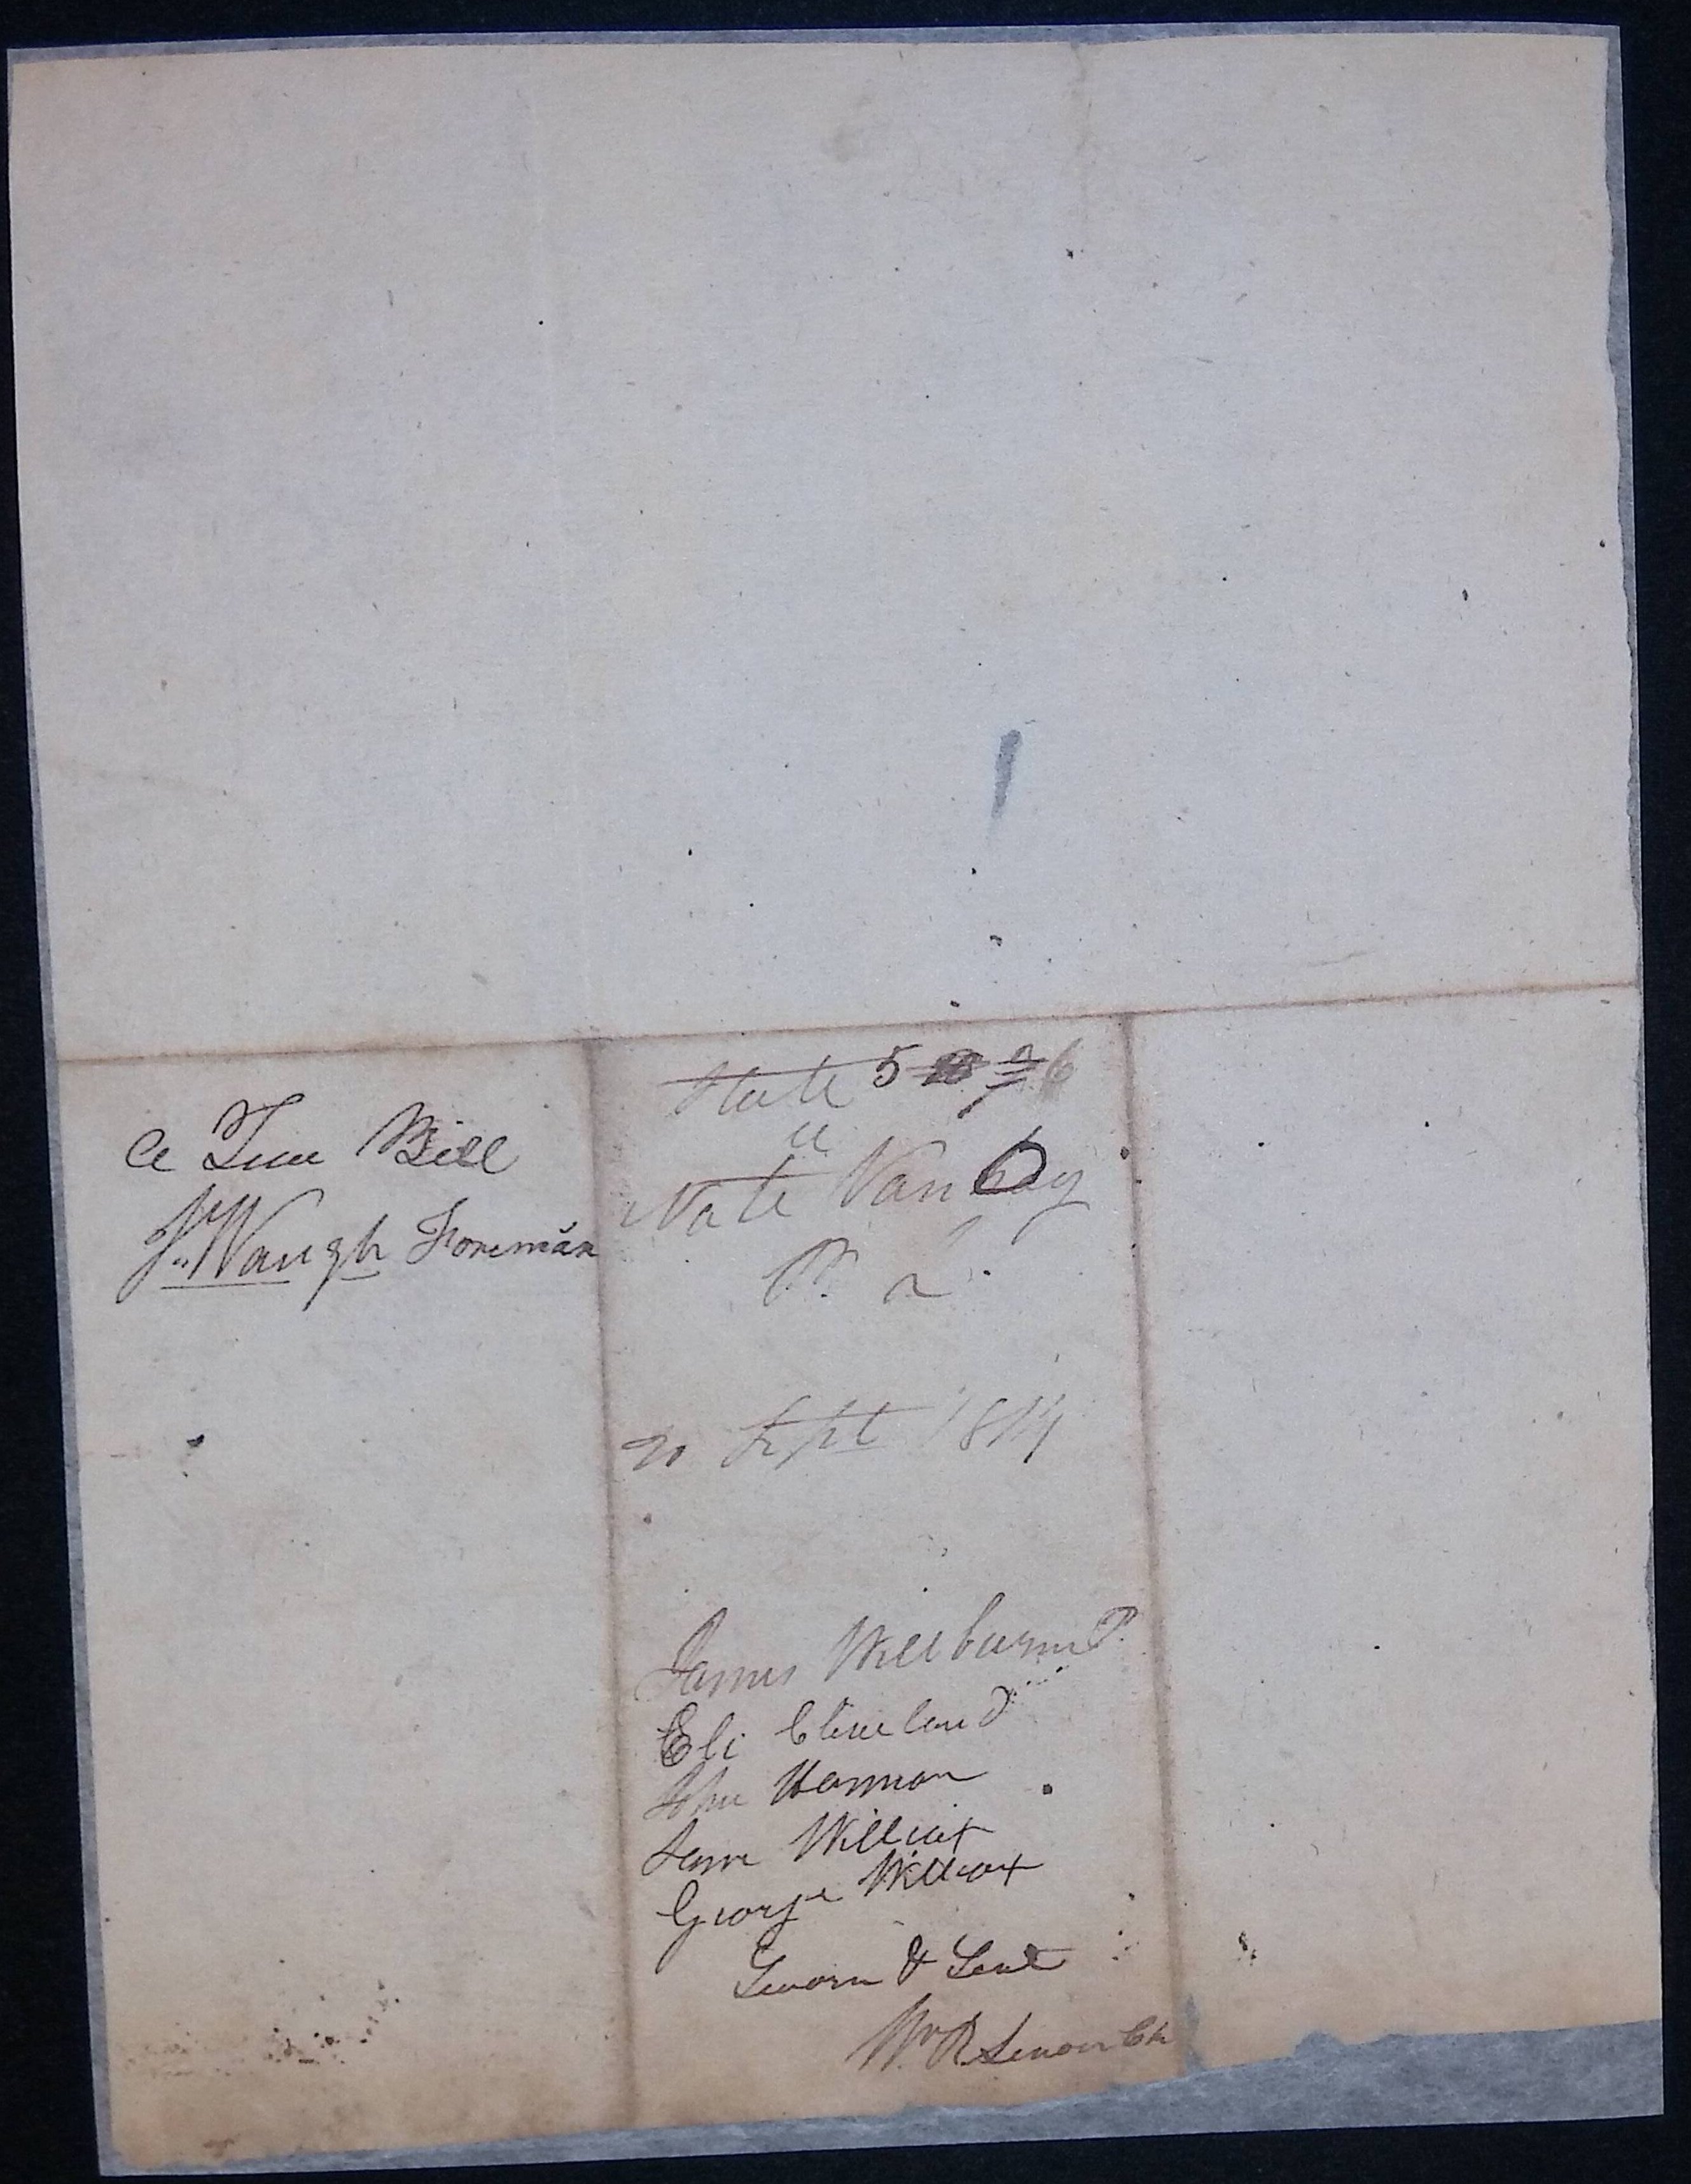 A True Bill
J. Waugh Foreman
State 5
Nate Vanhoy
Sept 1814
James Wellburn P.
Eli Cleveland
John Harmon
Sam Willcox
George Willcox
Sworn & Sent
Wm R Lenoir Clk